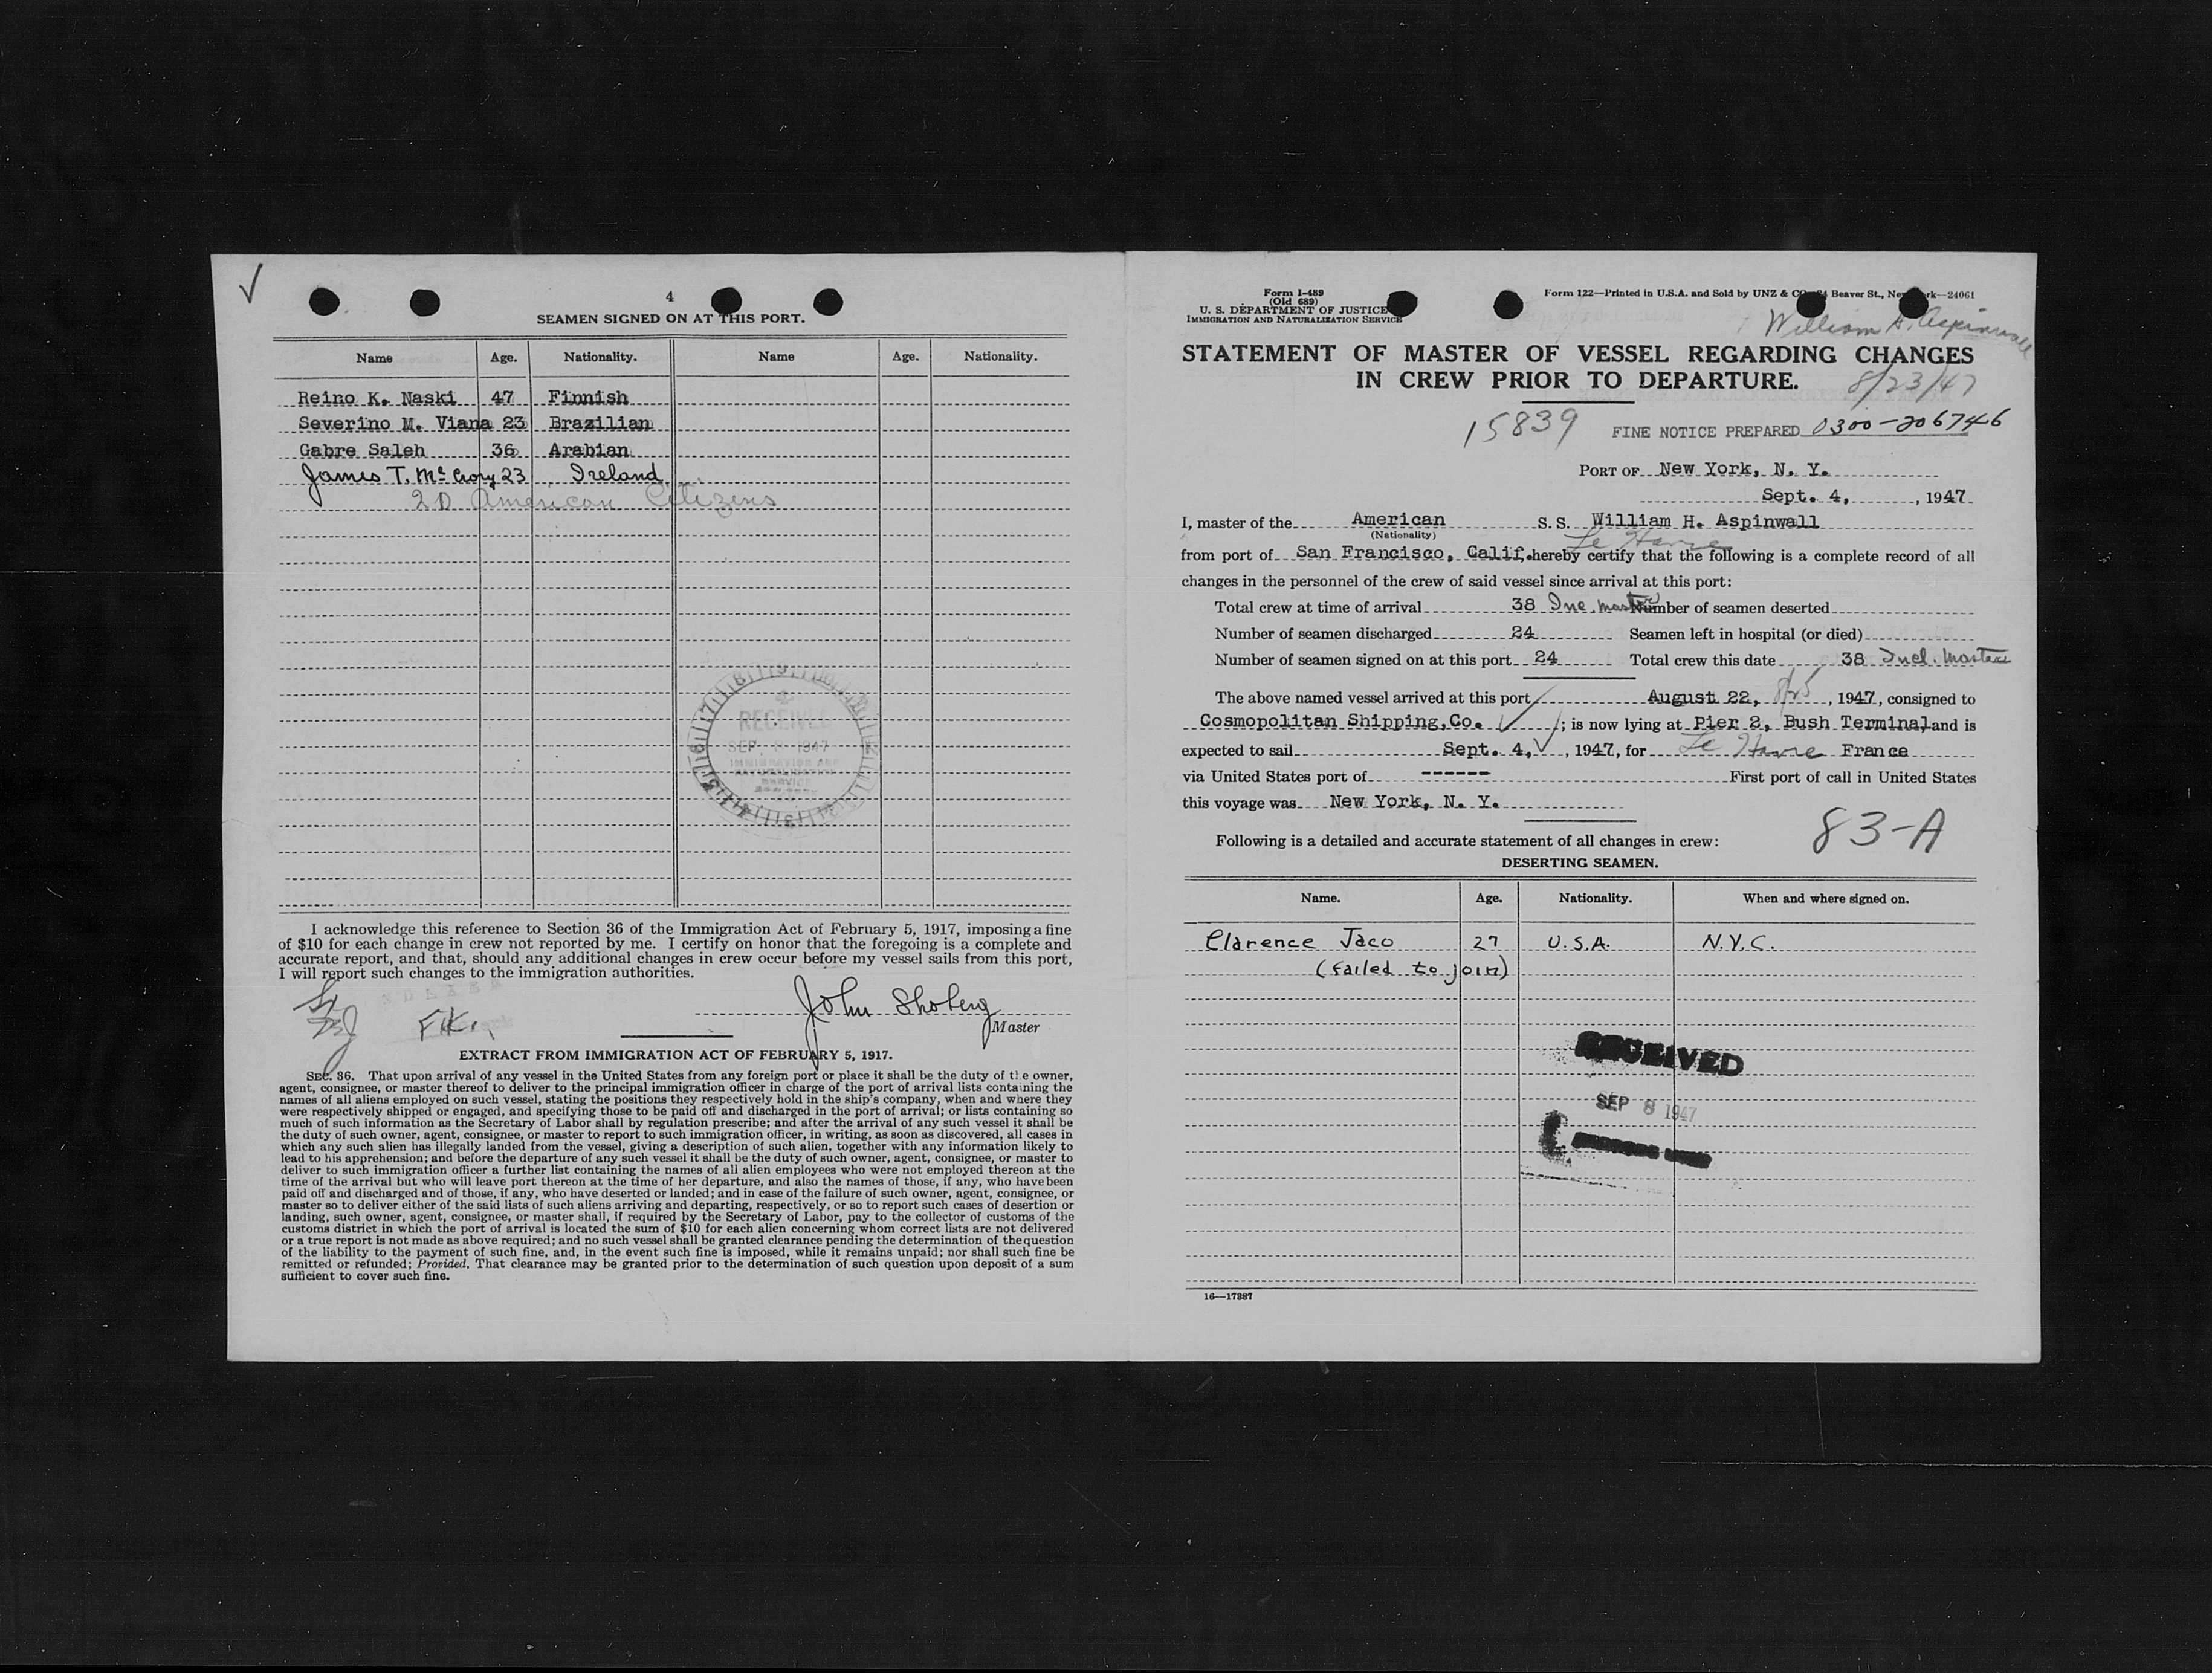 4
SEAMEN SIGNED ON AT THIS PORT.
Name Age. Nationality. Name Age. Nationality.
Reino K. Naski 47 Finnish
Severino M. Viana 23 Brazilian
Gabre Saleh 36 Arabian
James T. McCrory 23 Ireland
20 American Citizens
RECEIVED
SEP 1947
IMMIGRATION AND
NATURALIZATION
SERVICE
I acknowledge this reference to Section 36 of the Immigration Act of February 5, 1917, imposing a fine
of $10 for each change in crew not reported by me. I certify on honor that the foregoing is a complete and
accurate report, and that, should any additional changes in crew occur before my vessel sails from this port,
I will report such changes to the immigration authorities.
John Shoberg
Master
EXTRACT FROM IMMIGRATION ACT OF FEBRUARY 5, 1917.
SEC. 36. That upon arrival of any vessel in the United States from any foreign port or place it shall be the duty of the owner,
agent, consignee, or master thereof to deliver to the principal immigration officer in charge of the port of arrival lists containing the
names of all aliens employed on such vessel, stating the positions they respectively hold in the ship's company, when and where they
were respectively shipped or engaged, and specifying those to be paid off and discharged in the port of arrival; or lists containing so
much of such information as the Secretary of Labor shall by regulation prescribe; and after the arrival of any such vessel it shall be
the duty of such owner, agent, consignee, or master to report to such immigration officer, in writing, as soon as discovered, all cases in
which any such alien has illegally landed from the vessel, giving a description of such alien, together with any information likely to
lead to his apprehension; and before the departure of any such vessel it shall be the duty of such owner, agent, consignee, or master to
deliver to such immigration officer a further list containing the names of all alien employees who were not employed thereon at the
time of the arrival but who will leave port thereon at the time of her departure, and also the names of those, if any, who have been
paid off and discharged and of those, if any, who have deserted or landed; and in case of the failure of such owner, agent, consignee, or
master so to deliver either of the said lists of such aliens arriving and departing, respectively, or so to report such cases of desertion or
landing, such owner, agent, consignee, or master shall, if required by the Secretary of Labor, pay to the collector of customs of the
customs district in which the port of arrival is located the sum of $10 for each alien concerning whom correct lists are not delivered
or a true report is not made as above required; and no such vessel shall be granted clearance pending the determination of the question
of the liability to the payment of such fine, and, in the event such fine is imposed, while it remains unpaid; nor shall such fine be
remitted or refunded; Provided, That clearance may be granted prior to the determination of such question upon deposit of a sum
sufficient to cover such fine.
Form I-489
(Old 689)
U. S. DEPARTMENT OF JUSTICE
IMMIGRATION AND NATURALIZATION SERVICE
Form 122—Printed in U.S.A. and Sold by UNZ & CO. Beaver St., New York—24061
William H. Aspinwall
STATEMENT OF MASTER OF VESSEL REGARDING CHANGES
IN CREW PRIOR TO DEPARTURE.
8/23/47
15839 FINE NOTICE PREPARED 0300-206746
PORT OF New York, N. Y.
Sept. 4, , 1947
I, master of the American S. S. William H. Aspinwall
(Nationality) Le Havre
from port of San Francisco, Calif. hereby certify that the following is a complete record of all
changes in the personnel of the crew of said vessel since arrival at this port:
Total crew at time of arrival 38 Inc. master Number of seamen deserted
Number of seamen discharged 24 Seamen left in hospital (or died)
Number of seamen signed on at this port 24 Total crew this date 38 Incl. Master
The above named vessel arrived at this port August 22, 8/25, 1947, consigned to
Cosmopolitan Shipping, Co. ; is now lying at Pier 2, Bush Terminal and is
expected to sail Sept. 4, , 1947, for Le Havre France
via United States port of ------ First port of call in United States
this voyage was New York, N. Y.
83-A
Following is a detailed and accurate statement of all changes in crew:
DESERTING SEAMEN.
Name. Age. Nationality. When and where signed on.
Clarence Jaco 27 U.S.A. N.Y.C.
(failed to join)
RECEIVED
SEP 8 1947
16—17387